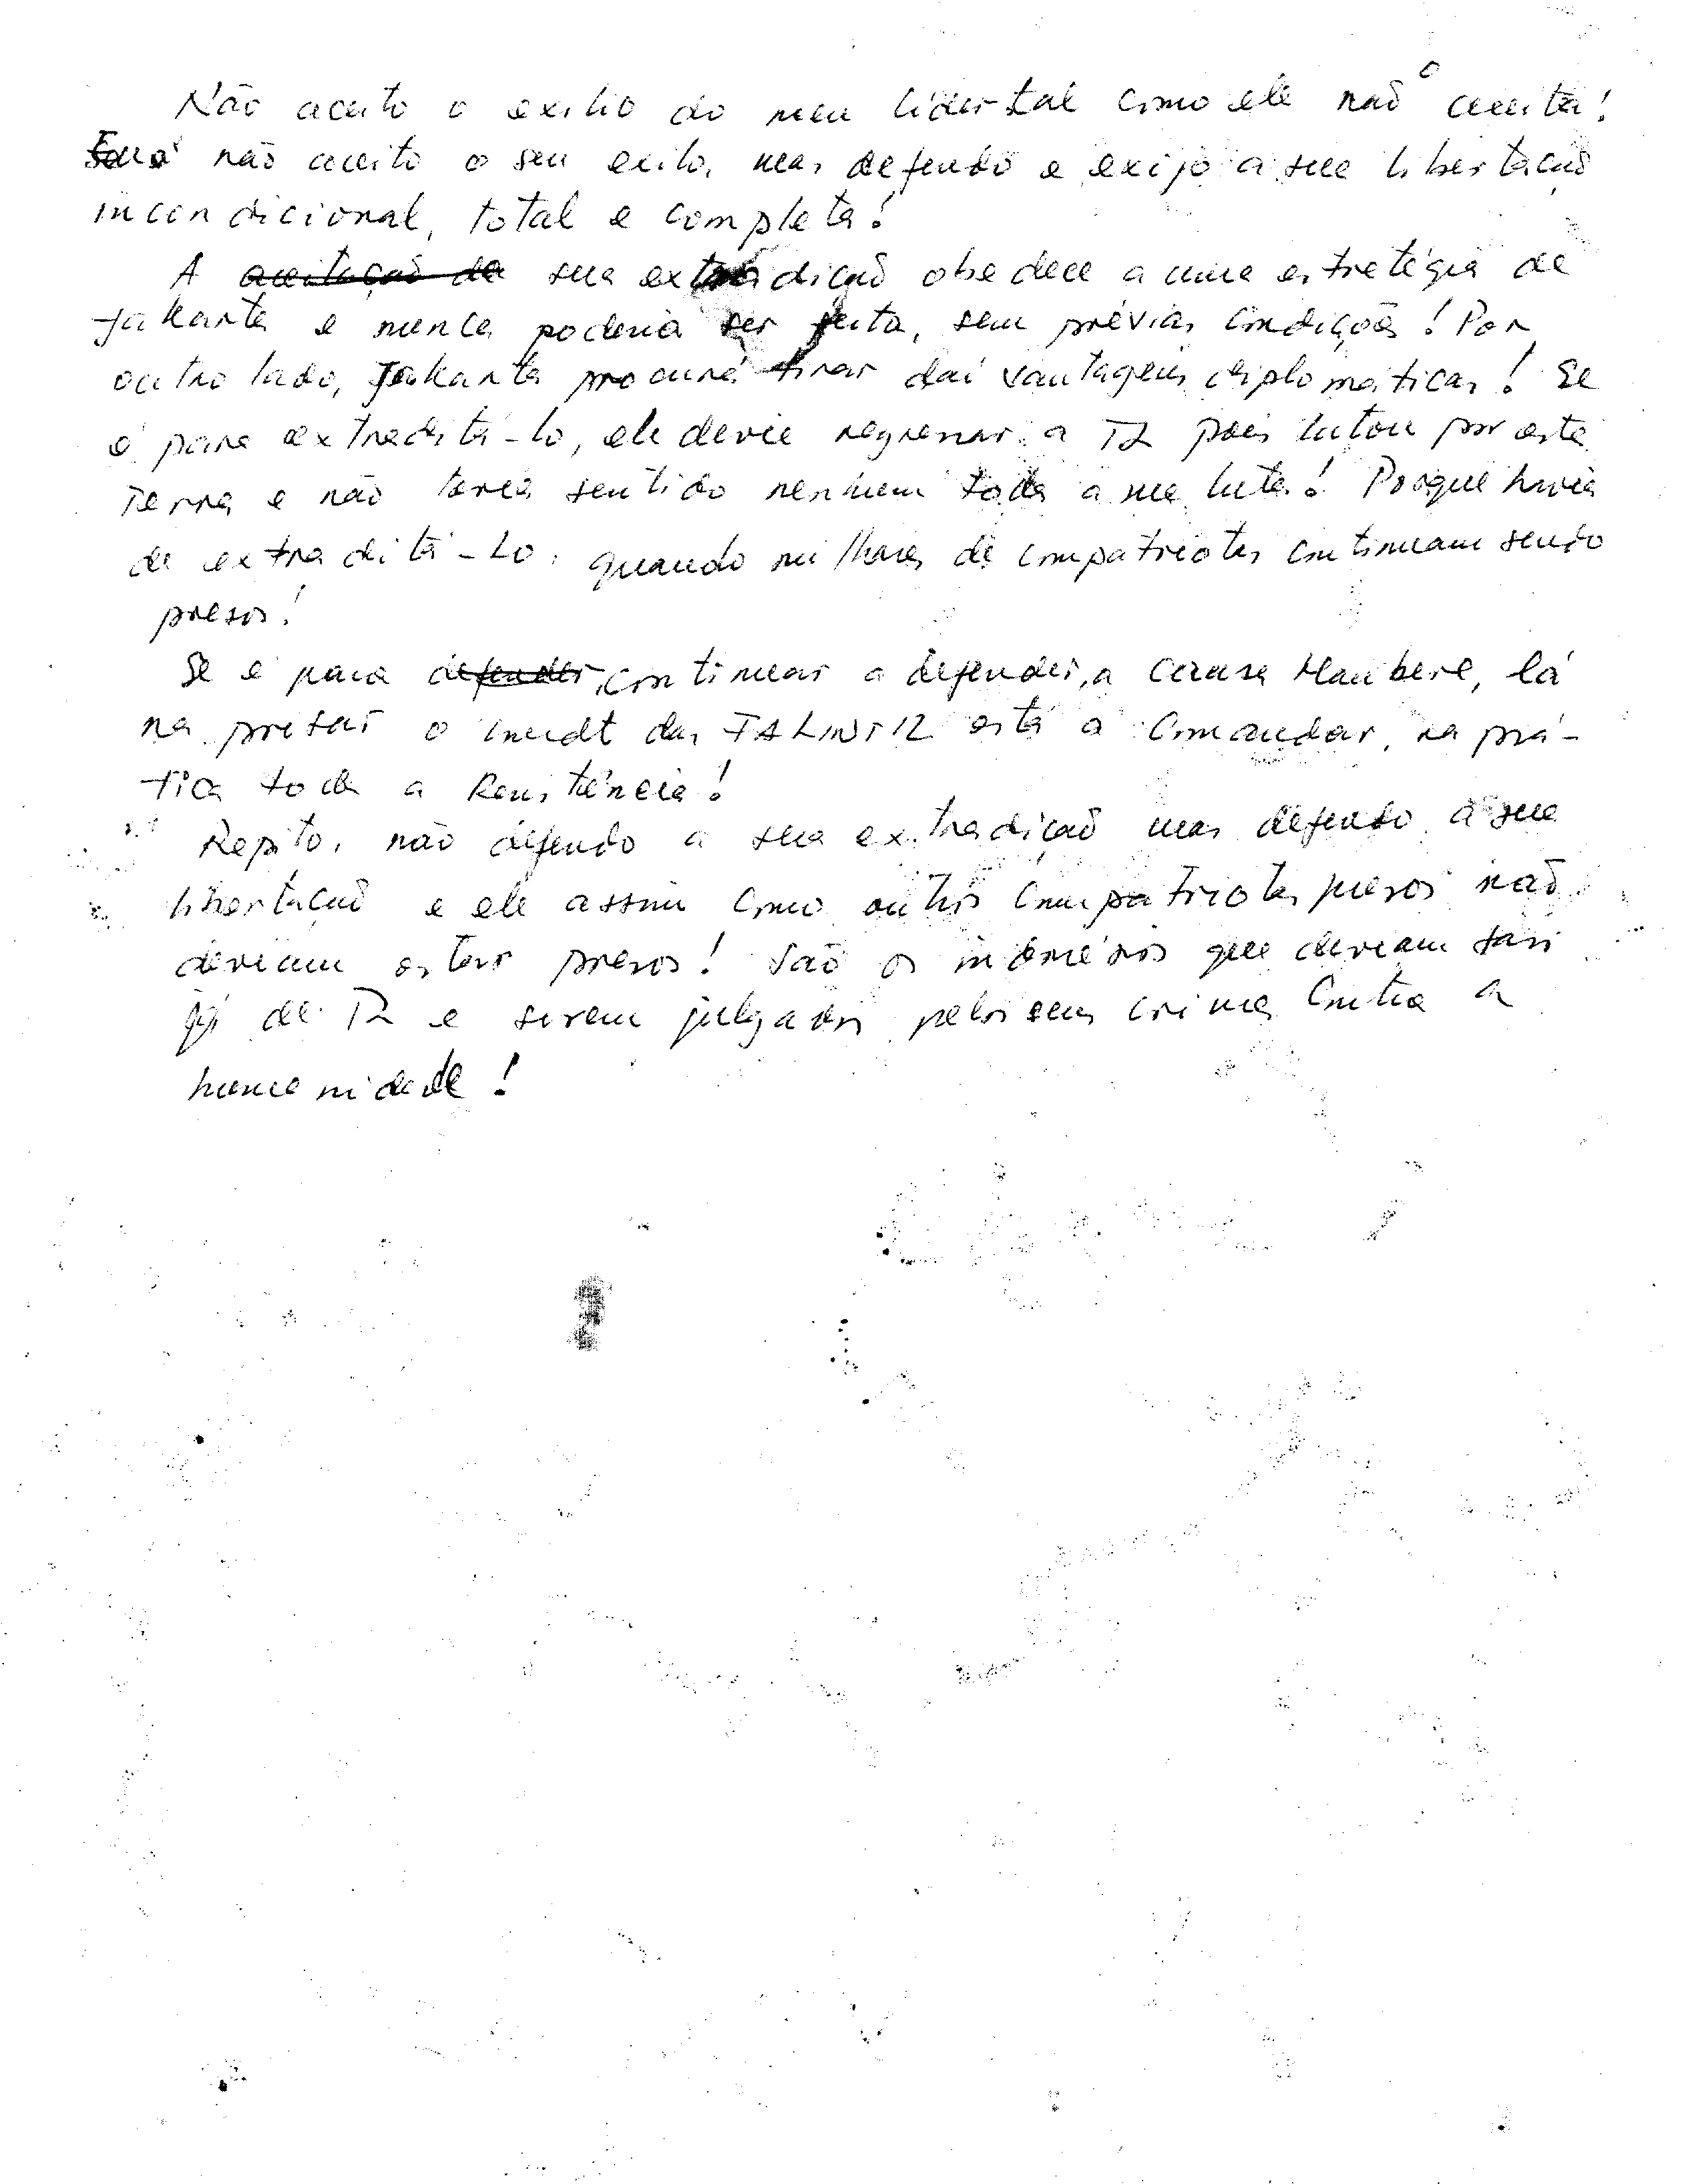 Não aceito o exílio do meu líder tal como ele não o aceita!
não aceito o seu exílo, mas defendo e exijo a sua libertação
incondicional, total e completa!
A aceitação da sua extradição obedece a uma estratégia de
Jakarta e nunca poderia ser feita, sem prévias condições! Por
outro lado, Jakarta procura tirar daí vantagens diplomáticas! Se
é para extraditá-lo, ele devia regressar a TL pois lutou por esta
Terra e não teria sentido nenhum toda a sua luta! Porque havia
de extraditá-lo, quando milhares de compatriotas continuam sendo
presos!
Se é para defender, continuar a defender, a causa Maubere, lá
na prisão o Cmdt das FALINTIL está a comandar, na prá-
tica toda a Resistência!
Repito, não defendo a sua extradição mas defendo a sua
libertação e ele assim como outros compatriotas presos não
deviam estar presos! São os indonésios que deviam sair
já de TL e serem julgados pelos seus crimes contra a
humanidade!